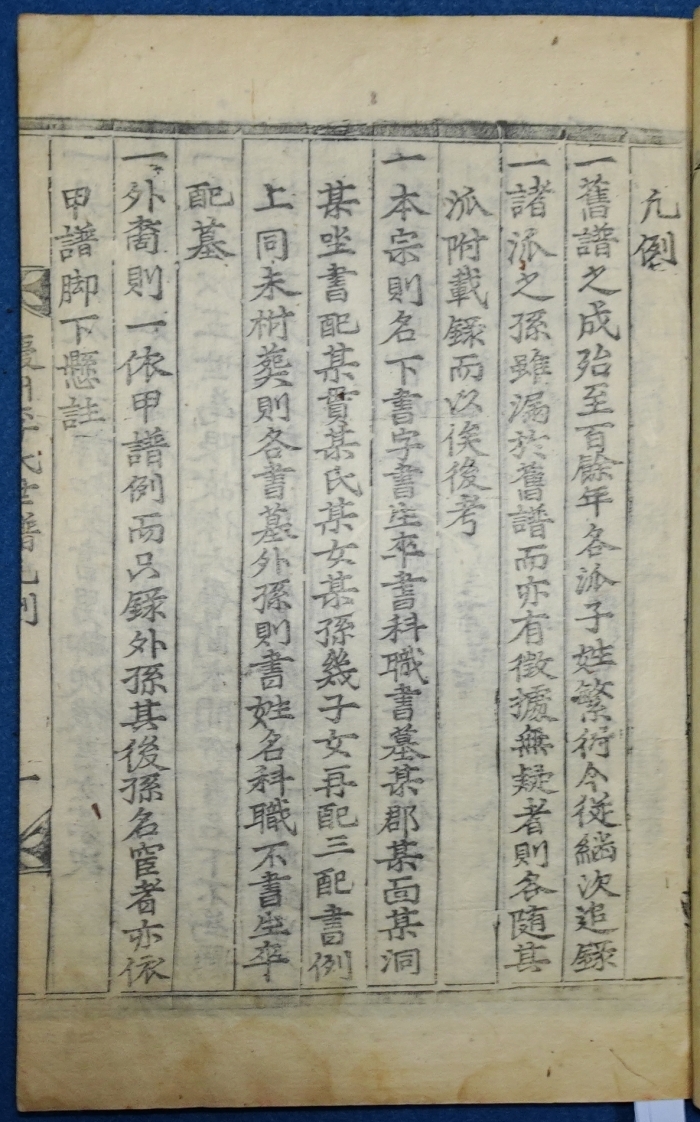 凡例
一舊譜之成殆至百餘年各派子姓繁衍今從編次追錄
一諸派之孫雖漏於舊譜而亦有徵據無疑者則各隨其
派附載錄而以俟後考
一本宗則名下書字書生卒書科職書墓某郡某面某洞
某坐書配某貫某氏某女某孫幾子女再配三配書例
上同未祔葬則各書墓外孫則書姓名科職不書生卒
配墓
一外裔則一依甲譜例而只錄外孫其後孫名宦者亦依
甲譜脚下懸註
氏世譜凡例
一